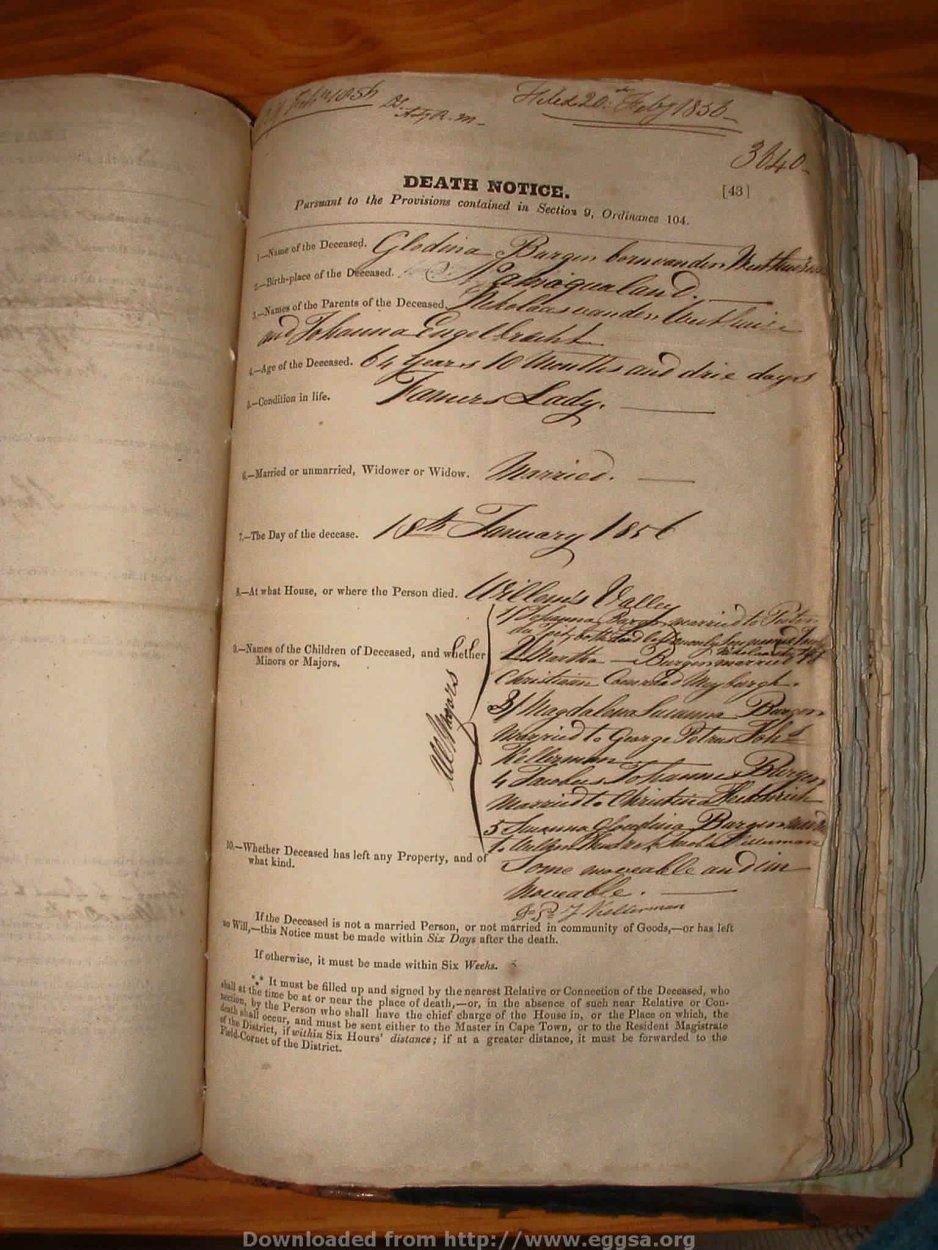 Filed 20th Feby 1856
3640
DEATH NOTICE. [43]
Pursuant to the Provisions contained in Section 9, Ordinance 104.
1.—Name of the Deceased. Glodina Burger born van den
2.—Birth-place of the Deceased. Namaqualand.
3.—Names of the Parents of the Deceased. Nikolaas van den
and Johanna Engelbracht
4.—Age of the Deceased. 64 Years 10 Months and drie days
5.—Condition in life. Famers Lady.
6.—Married or unmarried, Widower or Widow. Married.
7.—The Day of the decease. 18th January 1856
8.—At what House, or where the Person died. Willems Valley
9.—Names of the Children of Deceased, and whether
Minors or Majors.
All Majors
1/ Johanna Burger married to
2/ Martha Burger married to
Christiaan Coenraad Myburgh.
3/ Magdalena Susanna Burger
Married to George Petrus Johs
Kellerman
4 Jacobus Johannes Burger
Married to Christina
5 Susanna Glaudina Burger
10.—Whether Deceased has left any Property, and of
what kind.
Some moveable and im
moveable.
Kellerman
If the Deceased is not a married Person, or not married in community of Goods,—or has left
no Will,—this Notice must be made within Six Days after the death.
If otherwise, it must be made within Six Weeks.
*** It must be filled up and signed by the nearest Relative or Connection of the Deceased, who
shall at the time be at or near the place of death,—or, in the absence of such near Relative or Con-
nection, by the Person who shall have the chief charge of the House in, or the Place on which, the
death shall occur, and must be sent either to the Master in Cape Town, or to the Resident Magistrate
of the District, if within Six Hours' distance; if at a greater distance, it must be forwarded to the
Field-Cornet of the District.
Downloaded from http://www.eggsa.org